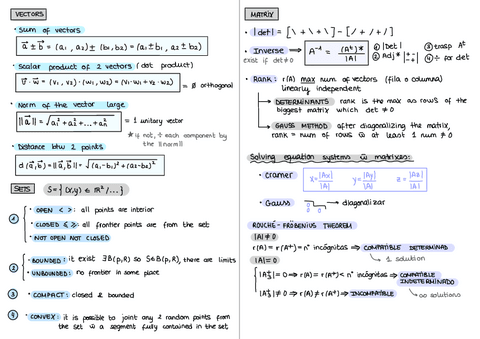 VECTORS
• Sum of vectors
a⃗ ± b⃗ = (a₁, a₂) ± (b₁, b₂) = (a₁ ± b₁, a₂ ± b₂)
• Scalar product of 2 vectors (dot product)
v⃗ · w⃗ = (v₁, v₂) · (w₁, w₂) = (v₁·w₁ + v₂·w₂) = 0 orthogonal
• Norm of the vector large
||a⃗|| = √a₁² + a₂² + ... + aₙ² = 1 unitary vector
* if not, ÷ each component by the ||norm||
• Distance btw 2 points
d(a⃗, b⃗) = ||a⃗, b⃗|| = √(a₁-b₁)² + (a₂-b₂)²
SETS S = { (x,y) ∈ ℝ² / ... }
1 • OPEN < > : all points are interior
• CLOSED ≤ ≥ : all frontier points are from the set
• NOT OPEN NOT CLOSED
2 • BOUNDED: it exist ∃B(p,R) so S∈B(p,R), there are limits
• UNBOUNDED: no frontier in some place
3 • COMPACT: closed & bounded
4 • CONVEX: it is possible to joint any 2 random points from
the set w a segment fully contained in the set
MATRIX
• |det| = [\ + \ + \] - [/ + / + /]
• Inverse → A⁻¹ = (Aᵃ)ᵗ / |A| ① |Det| ③ trasp Aᵗ
exist if det≠0 ② Adj ④ ÷ por det
• Rank: r(A) max num of vectors (fila o columna)
linearly independent
→ DETERMINANTS rank is the max as rows of the
biggest matrix which det ≠ 0
→ GAUSS METHOD after diagonalizing the matrix,
rank = num of rows w at least 1 num ≠ 0
Solving equation systems w matrixes:
• Cramer x = |Ax| / |A| y = |Ay| / |A| z = |Az| / |A|
• Gauss → diagonalizar
ROUCHÉ-FRÖBENIUS THEOREM
|A| ≠ 0
r(A) = r(A*) = nº incógnitas ⇒ COMPATIBLE DETERMINAD
1 solution
|A| = 0
= 0 ⇒ r(A) = r(A*) < nº incógnitas ⇒ COMPATIBLE
INDETERMINADO
≠ 0 ⇒ r(A) ≠ r(A*) ⇒ INCOMPATIBLE ∞ solutions